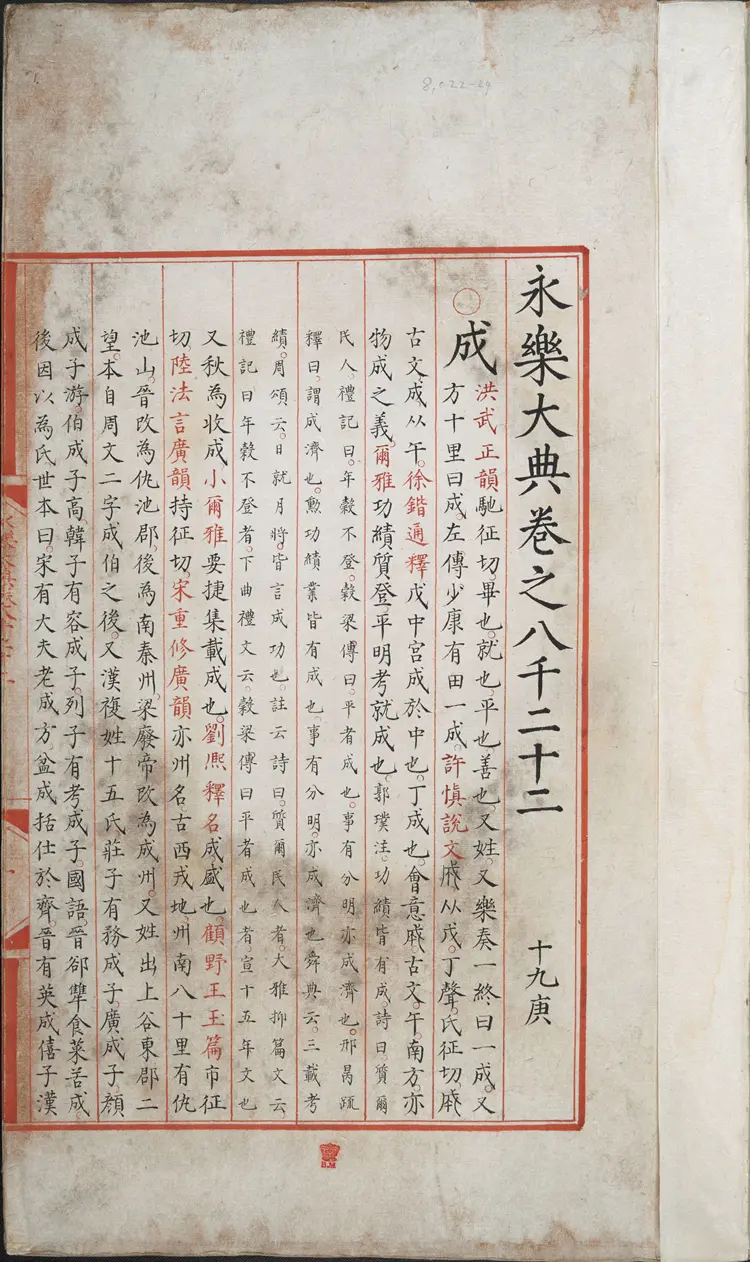 8,022-24
永樂大典卷之八千二十二 十九庚
成
洪武正韻馳征切畢也就也平也善也又姓又樂奏一終曰一成又
方十里曰成左傳少康有田一成許慎說文𢦩从戊丁聲氏征切𢦩
古文成从午徐鍇通釋戊中宮成於中也丁成也會意𢦩古文午南方亦
物成之義爾雅功績質登平明考就成也郭璞注功績皆有成詩曰質爾
民人禮記曰年穀不登穀梁傳曰平者成也事有分明亦成濟也邢昺疏
釋曰謂成濟也勲功績業皆有成也事有分明亦成濟也舜典云三載考
績周頌云日就月將皆言成功也註云詩曰質爾民人者大雅抑篇文云
禮記曰年穀不登者下曲禮文云穀梁傳曰平者成也者宣十五年文也
又秋為收成小爾雅要捷集載成也劉熙釋名成盛也顧野王玉篇市征
切陸法言廣韻持征切宋重修廣韻亦州名古西戎地州南八十里有仇
池山晉改為仇池郡後為南秦州梁廢帝改為成州又姓出上谷東郡二
望本自周文二字成伯之後又漢複姓十五氏莊子有務成子廣成子顏
成子游伯成子高韓子有容成子列子有考成子國語晉郤犨食菜苦成
後因以為氏世本曰宋有大夫老成方盆成括仕於齊晉有英成僖子漢